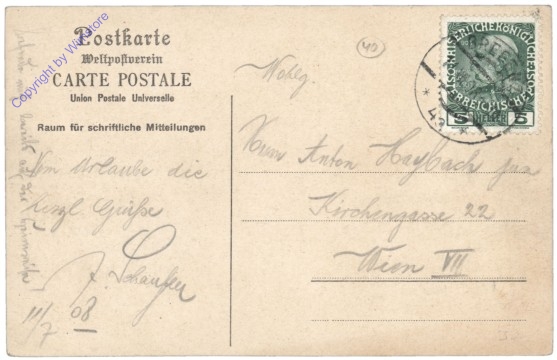 Postkarte
Weltpostverein
CARTE POSTALE
Union Postale Universelle
Raum für schriftliche Mitteilungen
Copyright by WinStore
Vom Urlaube die
herzl Grüße
11/7 08
42
Wohlg.
Herrn Anton Haybach jun
Kirchengasse 22
Wien VII
KAISERLICHE KÖNIGLICHE
ÖSTERREICHISCHE POST
5 HELLER 5